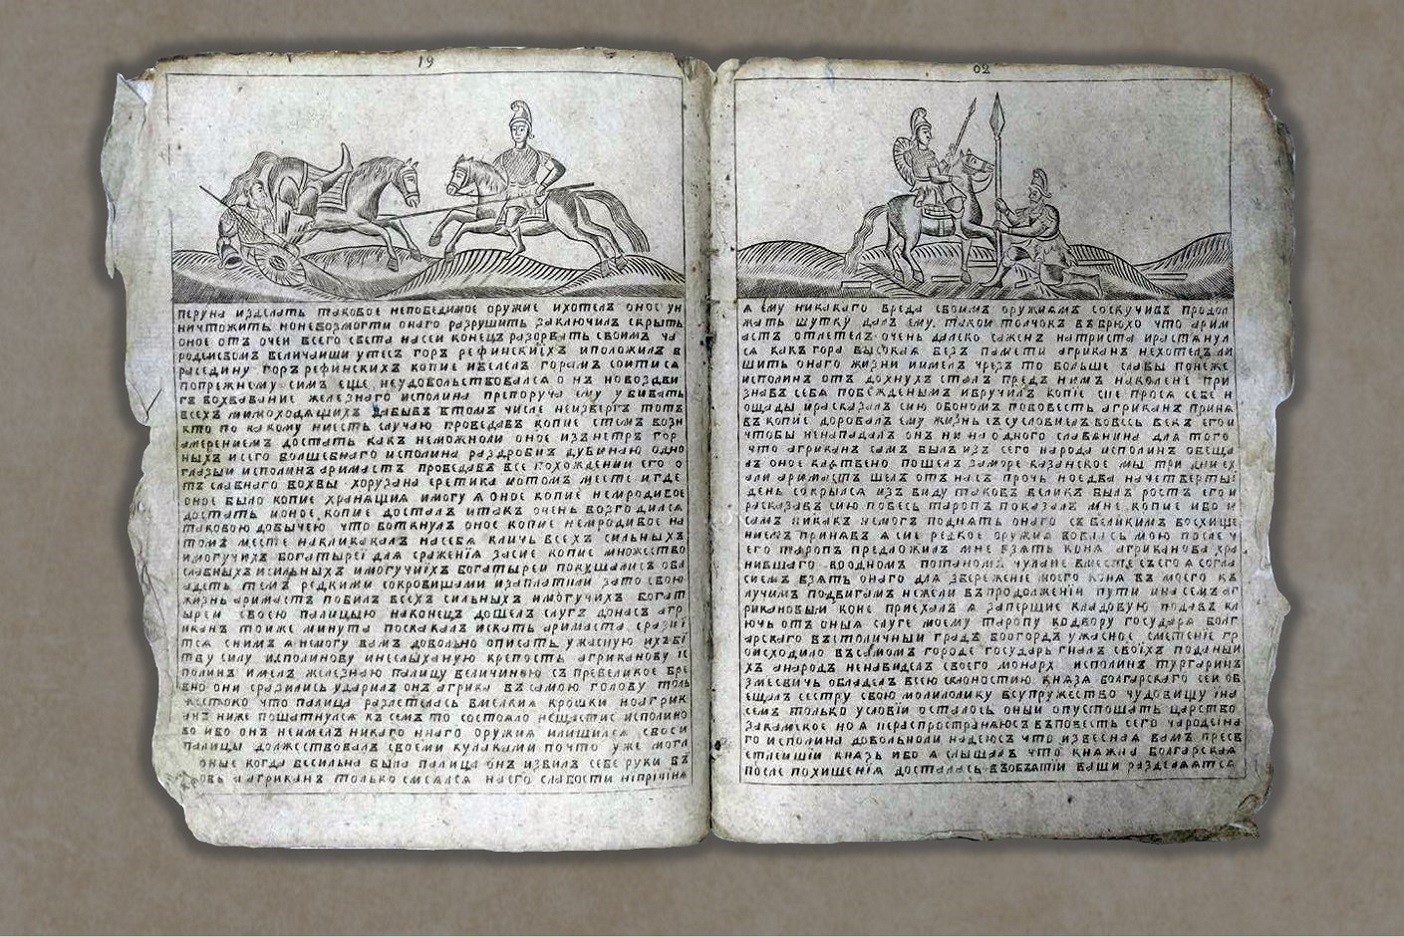 19
перуна изделать таковое непобедимое оружие ихотелъ оное ун
ничтожить нонебозмогти онаго разрушить заключилъ скрыть
оное отъ очеи всего света насеи конецъ разорвать своимъ ча
родеиством величаиши утесъ горъ рефинскиїхъ иположилъ в
раседину горъ рефинскихъ копие ивелелъ горамъ соитися
попрежнему симъ еще неудовольствовался о нъ новоздви
гъ вохвавание железнаго исполина препоруча ему убивать
всехъ мимоходящихъ забывъ втомъ числе неизвергъ тотъ
кто по какому ниесть случаю проведавъ копие стемъ возн
амерениемъ достать какъ неможноли оное изънетръ гор
ныхъ исего волшебнаго исполина раздробиъ дубиною одно
глазыи исполинъ аримастъ проведавъ все похождении его о
тъ славнаго вохвы хорузана еретика иотомъ месте игде
оное было копие хранящия имогу я оное копие немродивое
достать ионое копие досталъ итакъ очень возгодился
таковою добычею что воткнулъ оное копие немродивое на
томъ месте накликакалъ насебя кличь всехъ сильныхъ
имогучихъ богатыреї для сраженїя засие копие множество
славныхъ исильныхъ имогучиїхъ богатыреи покушались обл
адеть темъ редкими сокровишами изаплатили зато свою
жизнь аримастъ побилъ всехъ сильныхъ имогучихъ богат
ыреи своею палицыю наконецъ дошелъ слугъ донасъ агр
иканъ тоиже минута поскакалъ искать аримаста сразиї
тся снимъ янемогу вамъ довольно описать ужасную ихъбї
тву силу исполинову инеслыханую крепость агриканову iс
полинъ имелъ железнаю палицу величиною съ превеликое бре
вно они сразились ударилъ онъ агрика въ самою голову толь
жестоко что палица разлетелась вмелкия крошки ноагрик
анъ ниже пошатнулся къ семъ то состояло нещастие исполино
во ибо онъ неимелъ никаго инаго оружия илишился своеи
палицы должествовалъ своеми кулаками почто уже могл
оные когда весильна была палица онъ извилъ себе руки въ
кровь аагриканъ только смеялся наего слабости нiпрiчiня
02
я ему никакаго вреда своимъ оружиямъ соскучивъ продол
жать шутку далъ ему такои толчокъ въ брюхо что арим
астъ отлетелъ очень далеко саженъ натриста ирастянул
ся какъ гора высокая безъ памети агриканъ нехотелъ ли
шить онаго жизни иимелъ чрезъ то больше славы понеже
исполинъ отъ дохнухъ сталъ предъ нимъ наколене при
знавъ себя побежденымъ ивручилъ копїе сие прося себе п
ощады ирасказалъ сию обономъ пововесть агриканъ приня
въ копие доровалъ ему жизнь съ условиемъ вовесь векъ егои
чтобы ненападалъ онъ ни на одного славянина для того
что агриканъ самъ былъ изъ сего народа исполинъ обеща
лъ оное клятвено пошелъ заморе казанское мы три дни ех
али аримастъ шелъ отъ насъ прочь ноедва начетвертыї
день сокрылся изъ виду таковъ великъ былъ ростъ его и
расказавъ сию повесь таропъ показалъ мне копие ибо и
самъ никакъ немогъ поднять онаго съ великимъ восхище
ниемъ принявъ я сие редкое оружия вовлась мою после ч
его таропъ предложилъ мне взять коня агриканова хра
нившаго вродномъ потаномъ чулане вместе съ сего я согла
сиемъ взять онаго для збережение моего коня въ моего къ
лучимъ подвигамъ нежели въ продолжении пути ина семъ аг
рикановым коне приехалъ я заперши кладовую подавъ кл
ючь отъ оныя слуге моему таропу кодвору государя болг
арскаго въ столичныи градъ боогордъ ужасное сметение пр
оисходило въ самомъ городе государь гналъ своїхъ поданыи
хъ анародъ ненавиделъ своего монарх исполинъ тургаринъ
змеевичь обладелъ всею склоностию князя болгарскаго сеи об
ещалъ сестру свою молилолику всупружество чудовищу iна
семъ только условїи осталось оныи опустошать царство
закамское но я нераспространяюсъ въ повесть сего чародеина
го исполина довольноли надеюсъ что извесная вамъ пресв
етлеишїи князь ибо я слышалъ что княжна болгарская
после похищенїя досталась въ объятїи ваши разделяятся